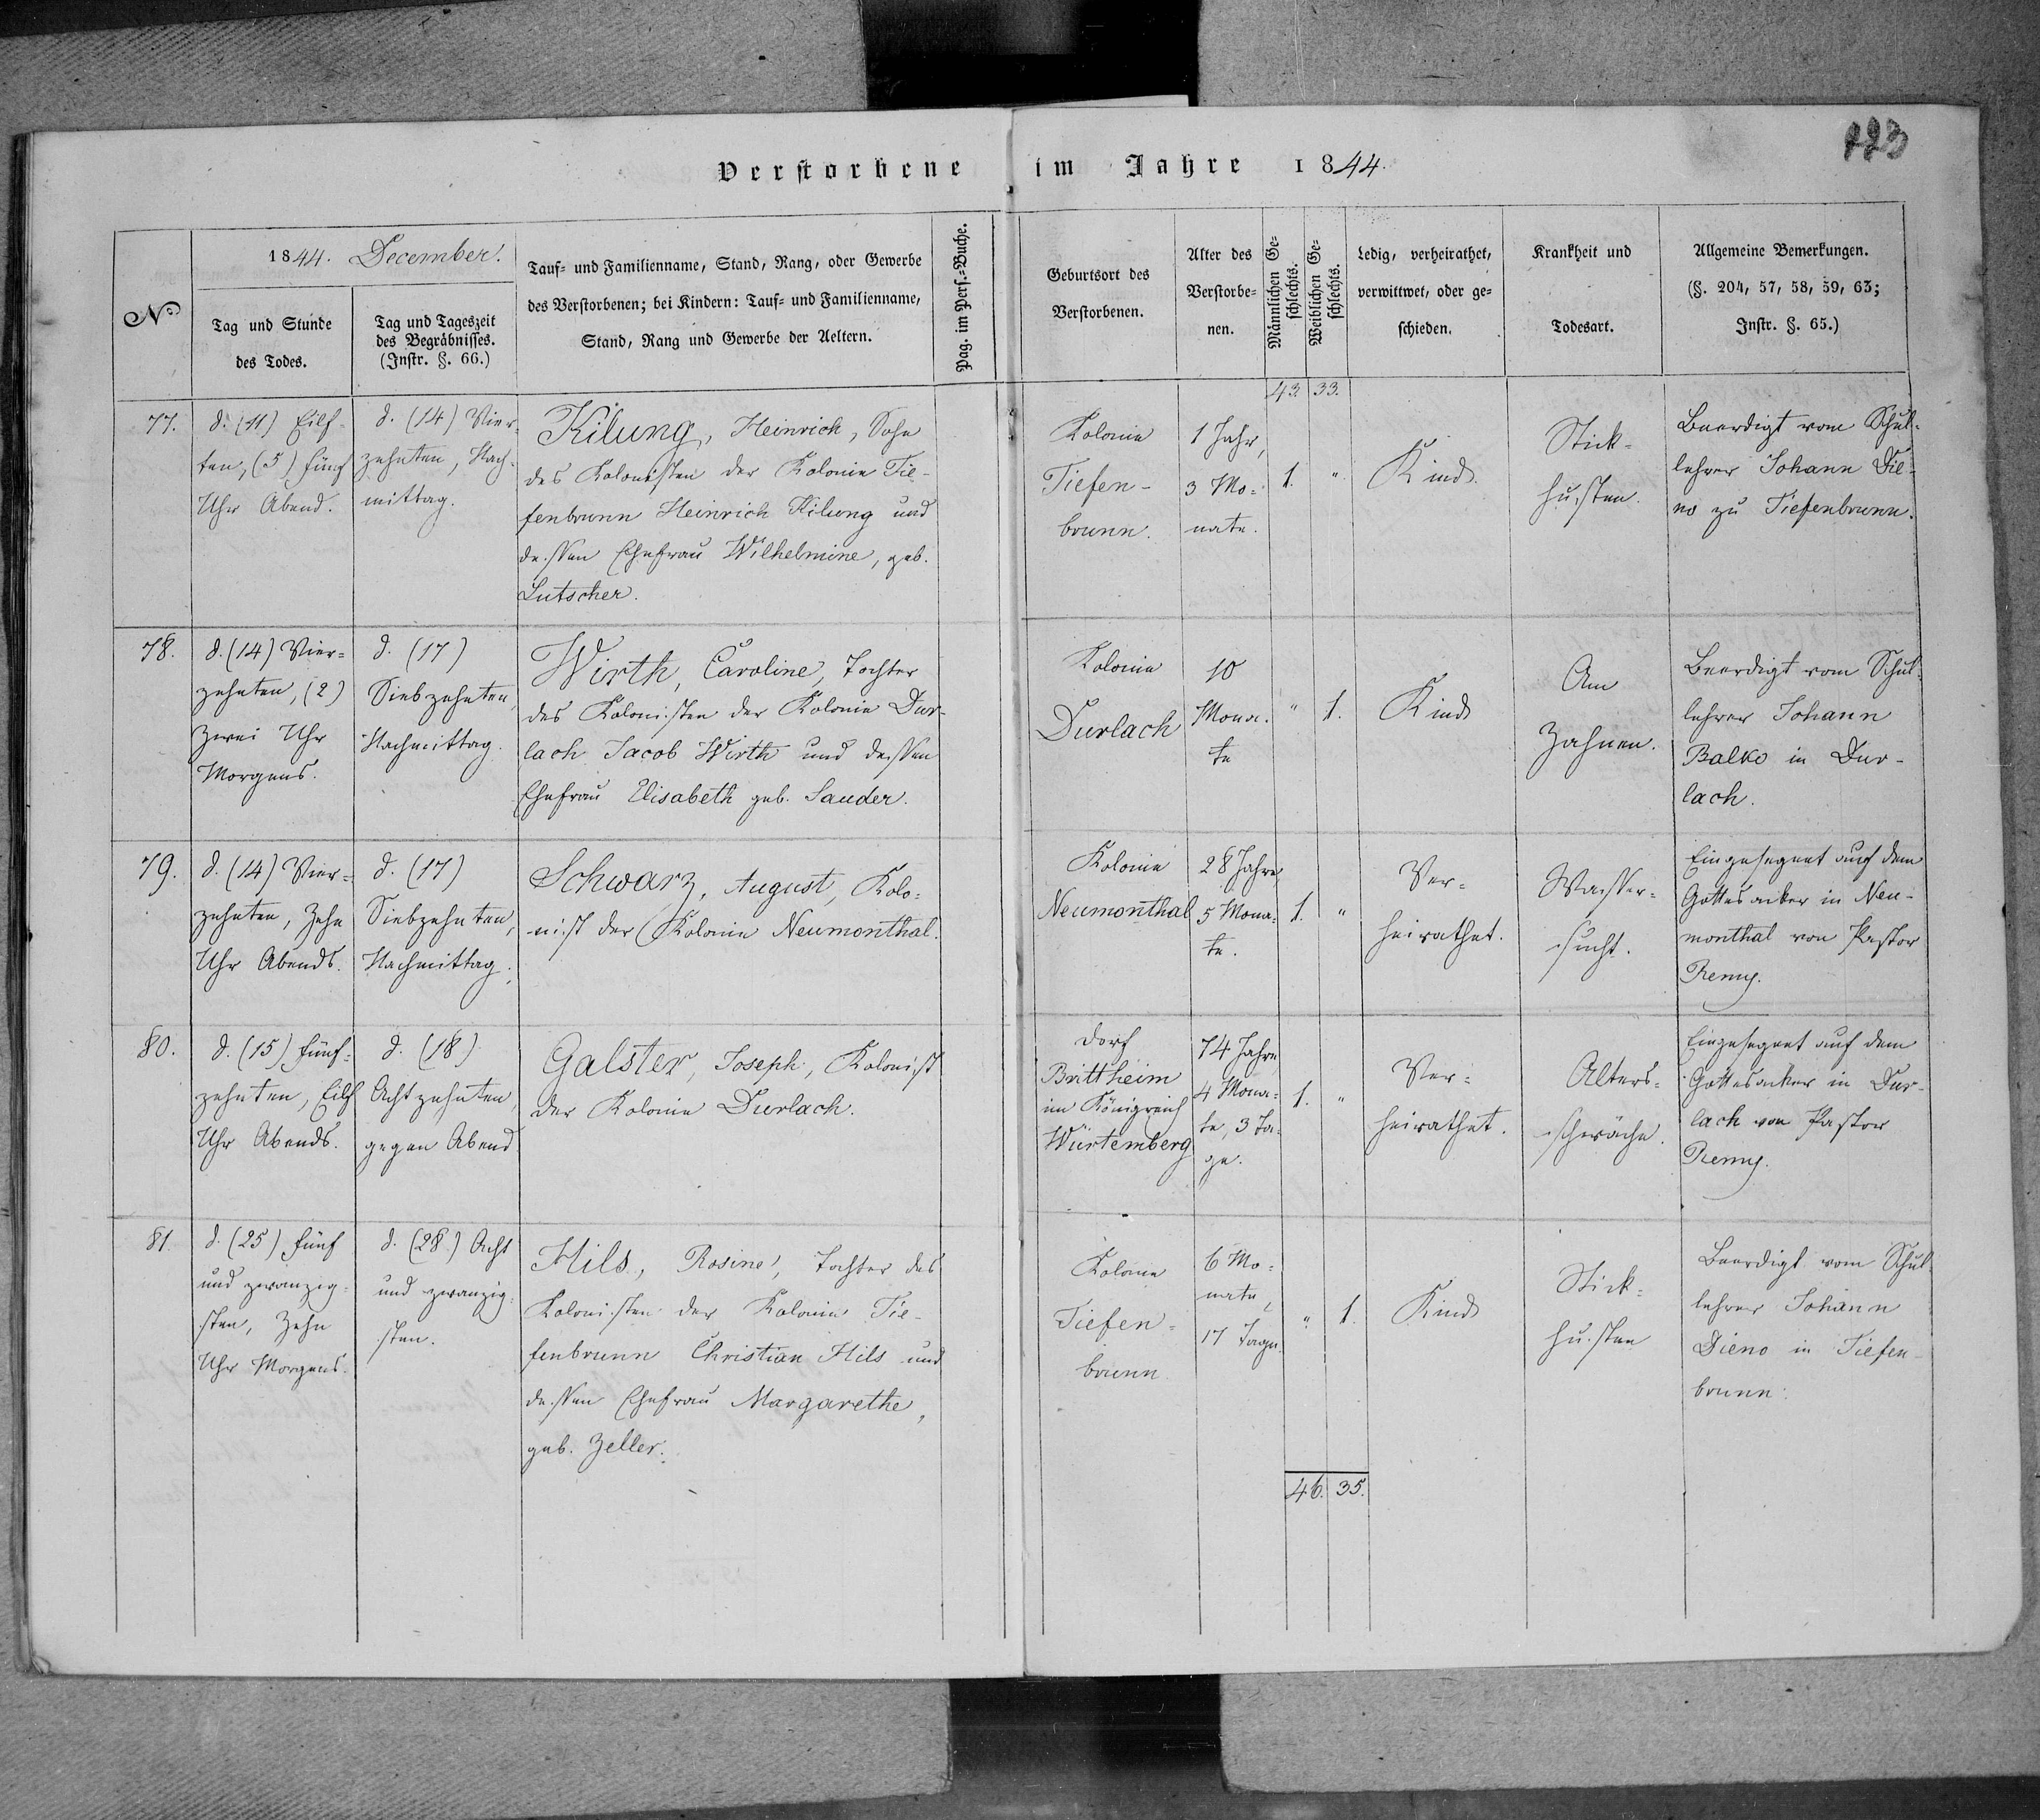 123
Verstorbene im Jahre 1844.
No
1844. December.
Tag und Stunde
des Todes.
Tag und Tageszeit
des Begräbnisses.
(Instr. §. 66.)
Tauf- und Familienname, Stand, Rang, oder Gewerbe
des Verstorbenen; bei Kindern: Tauf- und Familienname,
Stand, Rang und Gewerbe der Aeltern.
Pag. im Pers.-Buche.
Geburtsort des
Verstorbenen.
Alter des
Verstorbe-
nen.
Männlichen Ge-
schlechts.
Weiblichen Ge-
schlechts.
Ledig, verheirathet,
verwittwet, oder ge-
schieden.
Krankheit und
Todesart.
Allgemeine Bemerkungen.
(§. 204, 57, 58, 59, 63;
Instr. §. 65.)
43. 33.
77.
d. (11) Eilf-
ten, (5) fünf
Uhr Abend.
d. (14) Vier-
zehnten, Nach-
mittag.
Kilung, Heinrich, Sohn
des Kolonisten der Kolonie Tie-
fenbrunn Heinrich Kilung und
dessen Ehefrau Wilhelmine, geb.
Lutscher.
Kolonie
Tiefen-
brunn.
1 Jahr,
3 Mo-
nate.
1.
"
Kind.
Stick-
husten.
Beerdigt vom Schul-
lehrer Johann Die-
no zu Tiefenbrunn.
78.
d. (14) Vier-
zehnten, (2)
Zwei Uhr
Morgens.
d. (17)
Siebzehnten,
Nachmittag.
Wirth, Caroline, Tochter
des Kolonisten der Kolonie Dur-
lach Jacob Wirth und dessen
Ehefrau Elisabeth geb. Sauder.
Kolonie
Durlach
10
Mona-
te
"
1.
Kind
Am
Zahnen.
Beerdigt vom Schul-
lehrer Johann
Balko in Dur-
lach.
79.
d. (14) Vier-
zehnten, Zehn
Uhr Abends.
d. (17)
Siebzehnten,
Nachmittag.
Schwarz, August, Kolo-
nist der Kolonie Neumonthal.
Kolonie
Neumonthal
28 Jahre,
5 Mona-
te.
1.
"
Ver-
heirathet.
Wasser-
sucht.
Eingesegnet auf dem
Gottesacker in Neu-
monthal von Pastor
Remy.
80.
d. (15) fünf-
zehnten, Eilf
Uhr Abends.
d. (18)
Achtzehnten,
gegen Abend.
Galster, Joseph, Kolonist
der Kolonie Durlach.
Dorf
Brittheim
im Königreich
Würtemberg
74 Jahre,
4 Mona-
te, 3 Ta-
ge.
1.
"
Ver-
heirathet.
Alters-
schwäche.
Eingesegnet auf dem
Gottesacker in Dur-
lach von Pastor
Remy.
81.
d. (25) fünf
und zwanzig-
sten, Zehn
Uhr Morgens.
d. (28.) Acht
und zwanzig-
sten.
Hils, Rosine, Tochter des
Kolonisten der Kolonie Tie-
fenbrunn Christian Hils und
dessen Ehefrau Margarethe,
geb. Zeller.
Kolonie
Tiefen-
brunn
6 Mo-
nate,
17 Tage.
"
1.
Kind
Stick-
husten
Beerdigt vom Schul-
lehrer Johann
Dieno in Tiefen-
brunn.
46. 35.